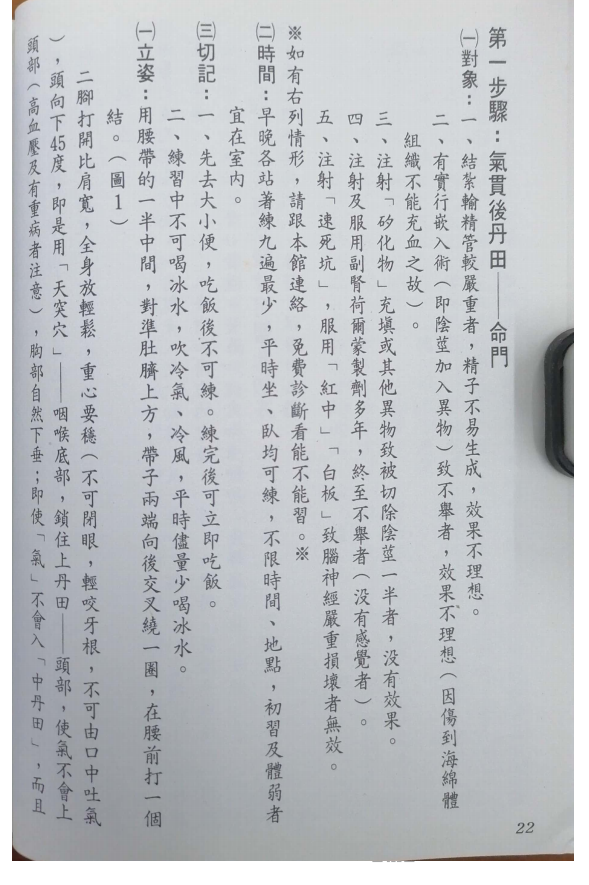 第一步驟：氣貫後丹田——命門
㈠對象：一、結紮輸精管較嚴重者，精子不易生成，效果不理想。
二、有實行嵌入術（即陰莖加入異物）致不舉者，效果不理想（因傷到海綿體
組織不能充血之故）。
三、注射「矽化物」充填或其他異物致被切除陰莖一半者，没有效果。
四、注射及服用副腎荷爾蒙製劑多年，終至不舉者（没有感覺者）。
五、注射「速死坑」，服用「紅中」「白板」致腦神經嚴重損壞者無效。
※如有右列情形，請跟本館連絡，免費診斷看能不能習。※
㈡時間：早晚各站著練九遍最少，平時坐、臥均可練，不限時間、地點，初習及體弱者
宜在室內。
㈢切記：一、先去大小便，吃飯後不可練。練完後可立即吃飯。
二、練習中不可喝冰水，吹冷氣、冷風，平時儘量少喝冰水。
㈠立姿：用腰帶的一半中間，對準肚臍上方，帶子兩端向後交叉繞一圈，在腰前打一個
結。（圖1）
二腳打開比肩寬，全身放輕鬆，重心要穩（不可閉眼，輕咬牙根，不可由口中吐氣
），頭向下45度，即是用「天突穴」——咽喉底部，鎖住上丹田——頭部，使氣不會上
頭部（高血壓及有重病者注意），胸部自然下垂；即使「氣」不會入「中丹田」，而且
22